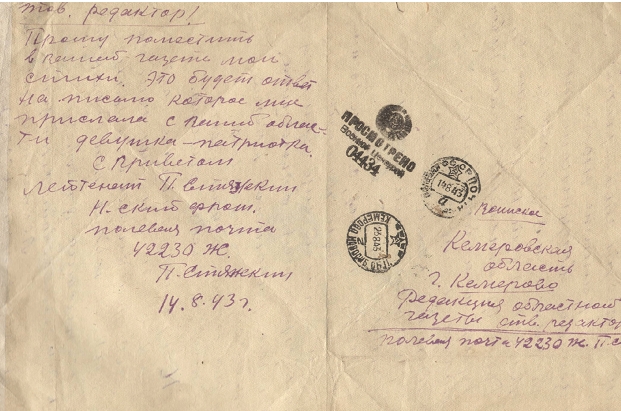 тов. редактор!
Прошу поместить
в вашей газете мои
стихи. Это будет ответ
на письмо которое мне
прислала с вашей облас-
ти девушка-патриотка.
с приветом
лейтенант П. Стяжкин
Н-ский фронт.
полевая почта
42230 Ж.
П. Стяжкин
14.8.43 г.
ПРОСМОТРЕНО
Военной Цензурой
04434
СССР ПОЧТА
14.8.43
КЕМЕРОВО
25.8.43
Воинское
Кемеровская
область
г. Кемерово
Редакция областной
газеты отв. редактор
полевая почта 42230 Ж. П. С